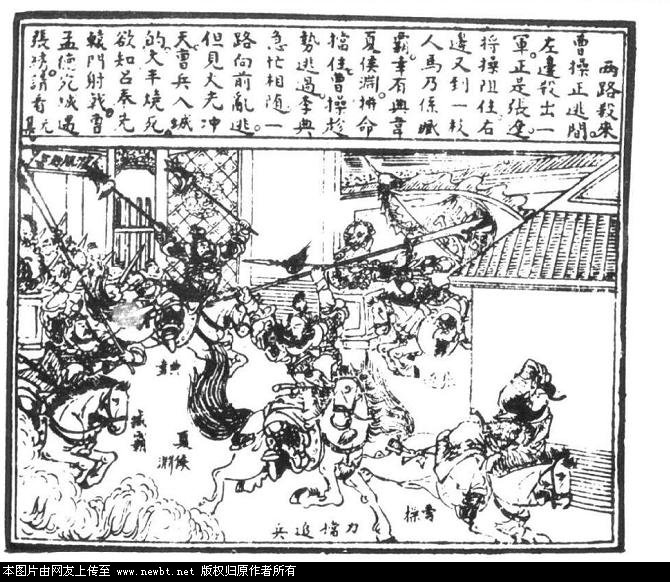 两路殺來
曹操正逃間。
左邊殺出一
軍。正是張遼
将操阻住。右
邊又到一
人馬乃係臧
霸。幸有典韋
夏侯淵。拚命
擋住。曹操趁
勢逃過。李典
急忙相随一
路向前亂逃
但見火光冲
天。曹兵入城
的大半燒死
欲知吕奉先
轅門射戟。曹
孟德宛城遇
張綉。請看
臧霸
夏侯淵
曹操
力擋追兵
本图片由网友上传至 www.newbt.net 版权归原作者所有